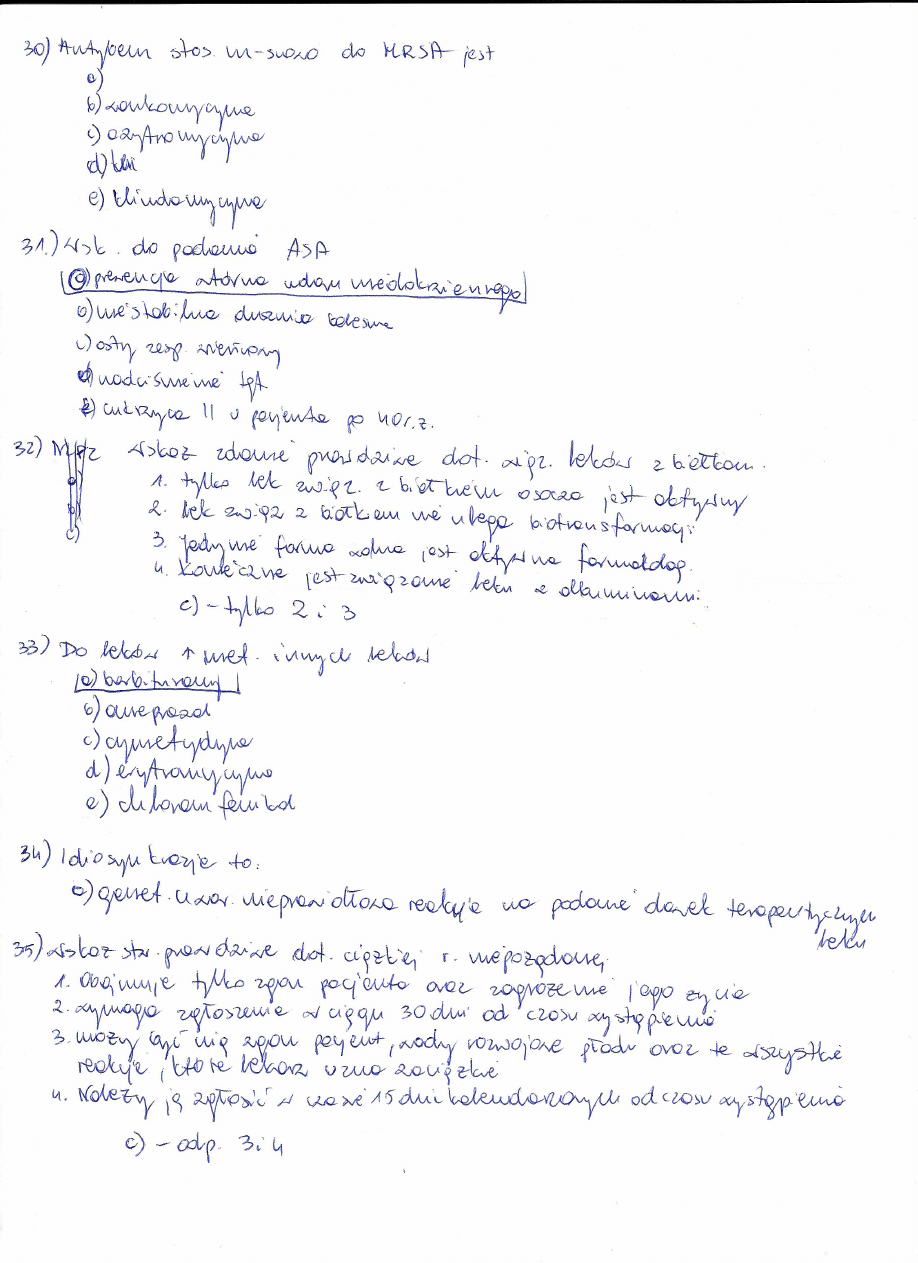 30) Antybem stos. m-scowo do MRSA jest
a)
b) wankomycyna
c) azytromycyna
d)
e) klindamycyna
31.) Wsk. do podania ASA
a) prewencja wtórna udaru niedokrwiennego
b) niestabilna dusznica bolesna
c) ostry zesp. wieńcowy
d) nadciśnienie tęt
e) cukrzyca II u pacjenta po 40 r.ż.
32) Wskaż zdanie prawdziwe dot. wiąz. leków z białkam.
1. tylko lek związ. z białkiem osocza jest aktywny
2. lek związ z białkem nie ulega biotransformacji
3. jedynie forma wolna jest aktywna farmakolog.
4. Konieczne jest związanie leku z albuminami
c) - tylko 2 i 3
33) Do leków ↑ met. innych leków
a) barbiturany
b) omeprazol
c) cymetydyna
d) erytromycyna
e) chloramfenikol
34) Idiosynkrazje to:
a) genet. uwar. nieprawidłowa reakcja na podanie dawek terapeutycznych
leku
35) Wskaż stw. prawdziwe dot. ciężkiej r. niepożądanej
1. Obejmuje tylko zgon pacjenta oraz zagrożenie jego życia
2. wymaga zgłoszenia w ciągu 30 dni od czasu wystąpienia
3. może być nią zgon pacjent, wady rozwojowe płodu oraz te wszystkie
reakcje, które lekarz uzna za ciężkie
4. Należy ją zgłosić w czasie 15 dni kalendarzowych od czasu wystąpienia
c) - odp. 3 i 4